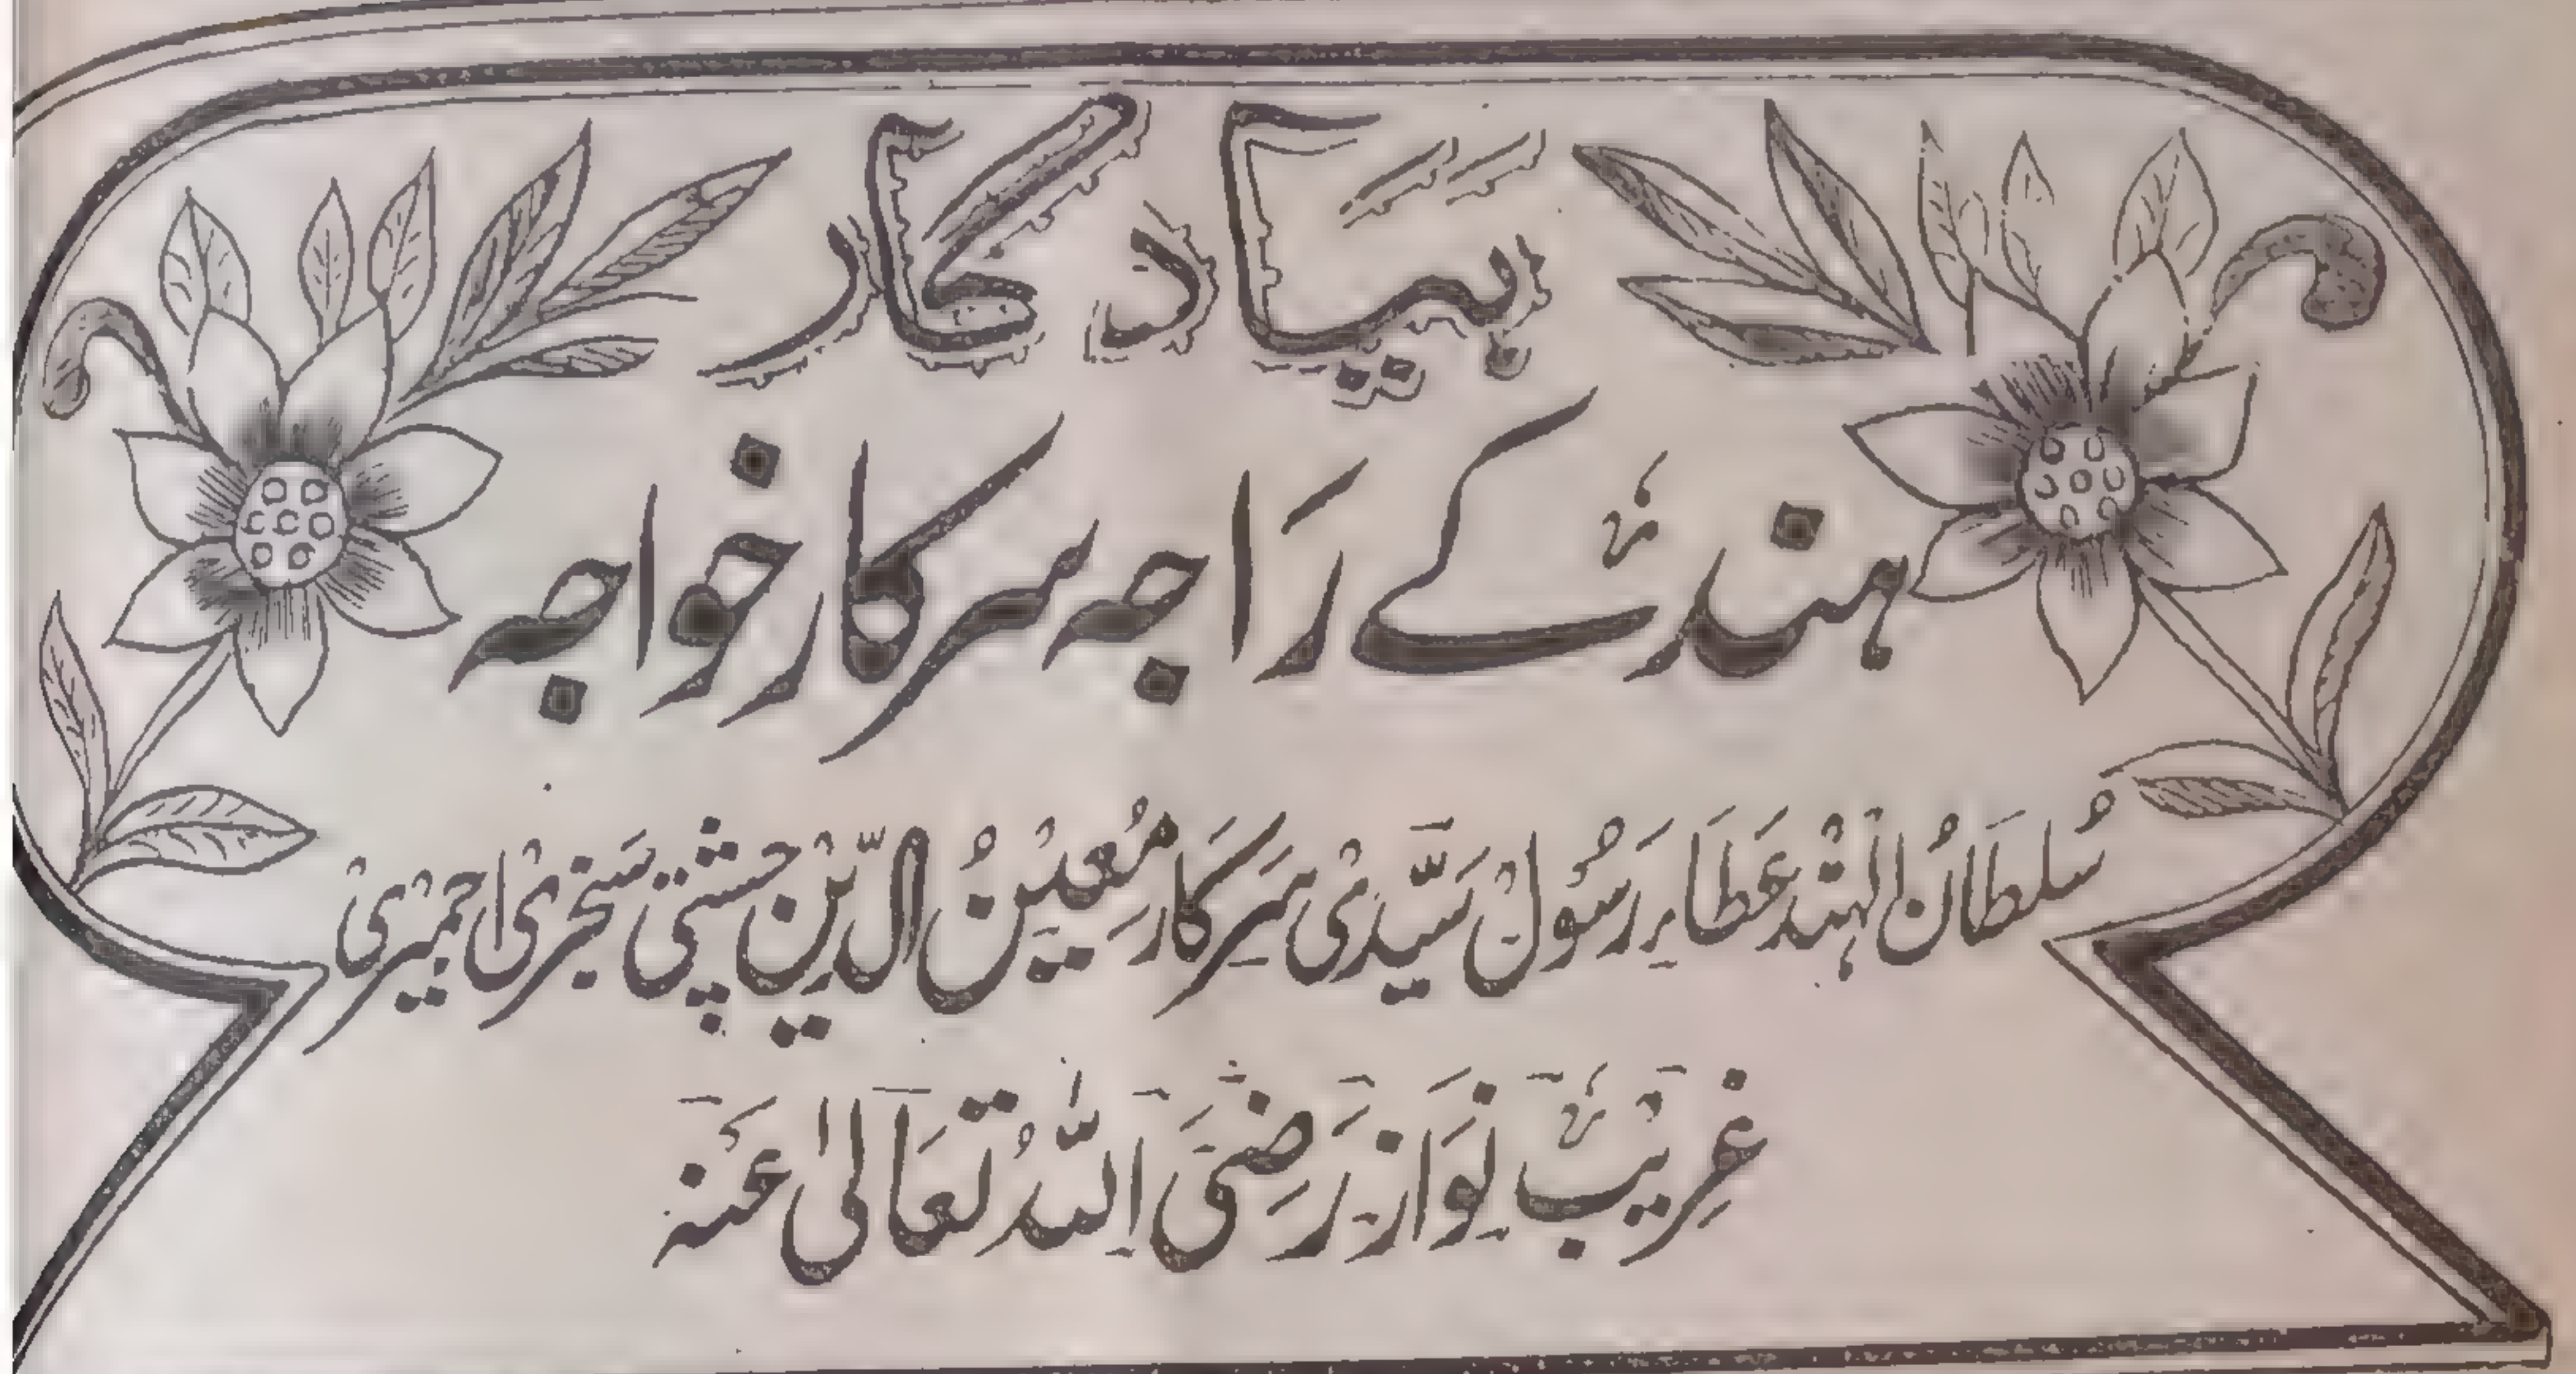 بیَادگار
ہندؔ کے رَاجہ سرکار خواجہ
سُلطَانُ الہنْد عَطَاءِ رَسُولْ سَیَّدِیْ سَرکَارِ مُعِیْنُ الّدِیْن چشْتیْ سَنجَریْ اجمیْرِیْ
غَرِیْبؔ نَوَاز رَضِیَ اللّٰہُ تَعَالیٰ عَنہ